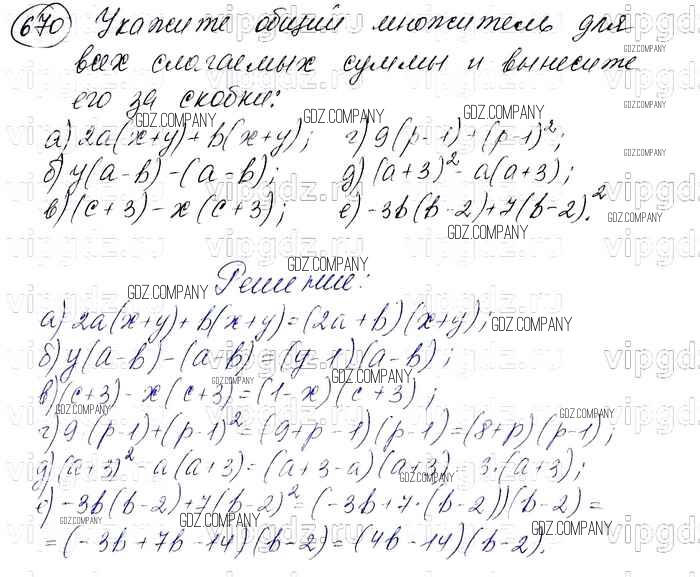 670 Укажите общий множитель для
всех слагаемых суммы и вынесите
его за скобки:
а) 2a(x+y)+b(x+y); г) 9(p-1)+(p-1)²;
б) y(a-b)-(a-b); д) (a+3)²-a(a+3);
в) (c+3)-x(c+3); е) -3b(b-2)+7(b-2)².
Решение:
а) 2a(x+y)+b(x+y)=(2a+b)(x+y);
б) y(a-b)-(a-b)=(y-1)(a-b);
в) (c+3)-x(c+3)=(1-x)(c+3);
г) 9(p-1)+(p-1)²=(9+p-1)(p-1)=(8+p)(p-1);
д) (a+3)²-a(a+3)=(a+3-a)(a+3)=3·(a+3);
е) -3b(b-2)+7(b-2)²=(-3b+7·(b-2))(b-2)=
=(-3b+7b-14)(b-2)=(4b-14)(b-2).
GDZ.COMPANY
vipgdz.ru